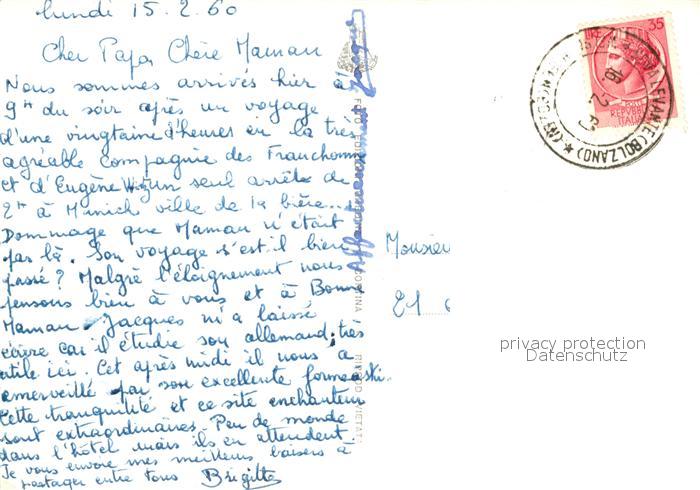 lundi 15.2.60
Cher Papa, Chère Maman
Nous sommes arrivés hier à
9h du soir après un voyage
d'une vingtaine d'heures en la très
agréable compagnie des Franchomme
et d'Eugène un seul arrêt de
2h à Munich ville de la bière...
Dommage que Maman n'était
pas là. Son voyage s'est il bien
passé? Malgré l'éloignement nous
pensons bien à vous et à Bonne
Maman. Jacques m'a laissé
écrire car il étudie son allemand, très
utile ici. Cet après midi il nous a
émerveillé par son excellente forme ski.
Cette tranquilité et ce site enchanteur
sont extraordinaires. Peu de monde
dans l'hôtel mais ils en attendent
Je vous envoie mes meilleurs baisers à
partager entre tous Brigitte
Affectueusement Jacques
FOTO CORTINA RIPROD. VIETATA
35
LIRE
REPUBBLICA
ITALIANA
LEVANTE (BOLZANO)
16 2
Monsieu
21
privacy protection
Datenschutz